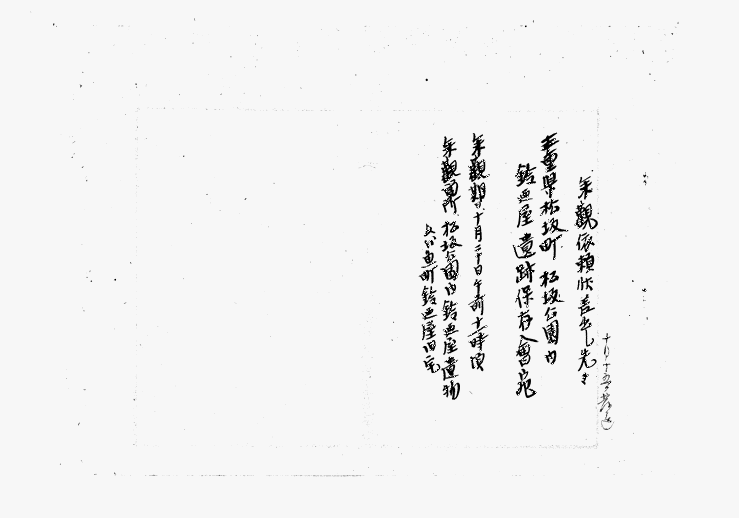 参觀依頼状差出先
十月十五日発送
三重県松坂町 松坂公園内
鈴屋遺跡保存会宛
参觀期日十月二十日午前十一時頃
参觀箇所 松坂公園内鈴屋遺物
魚町鈴屋旧宅